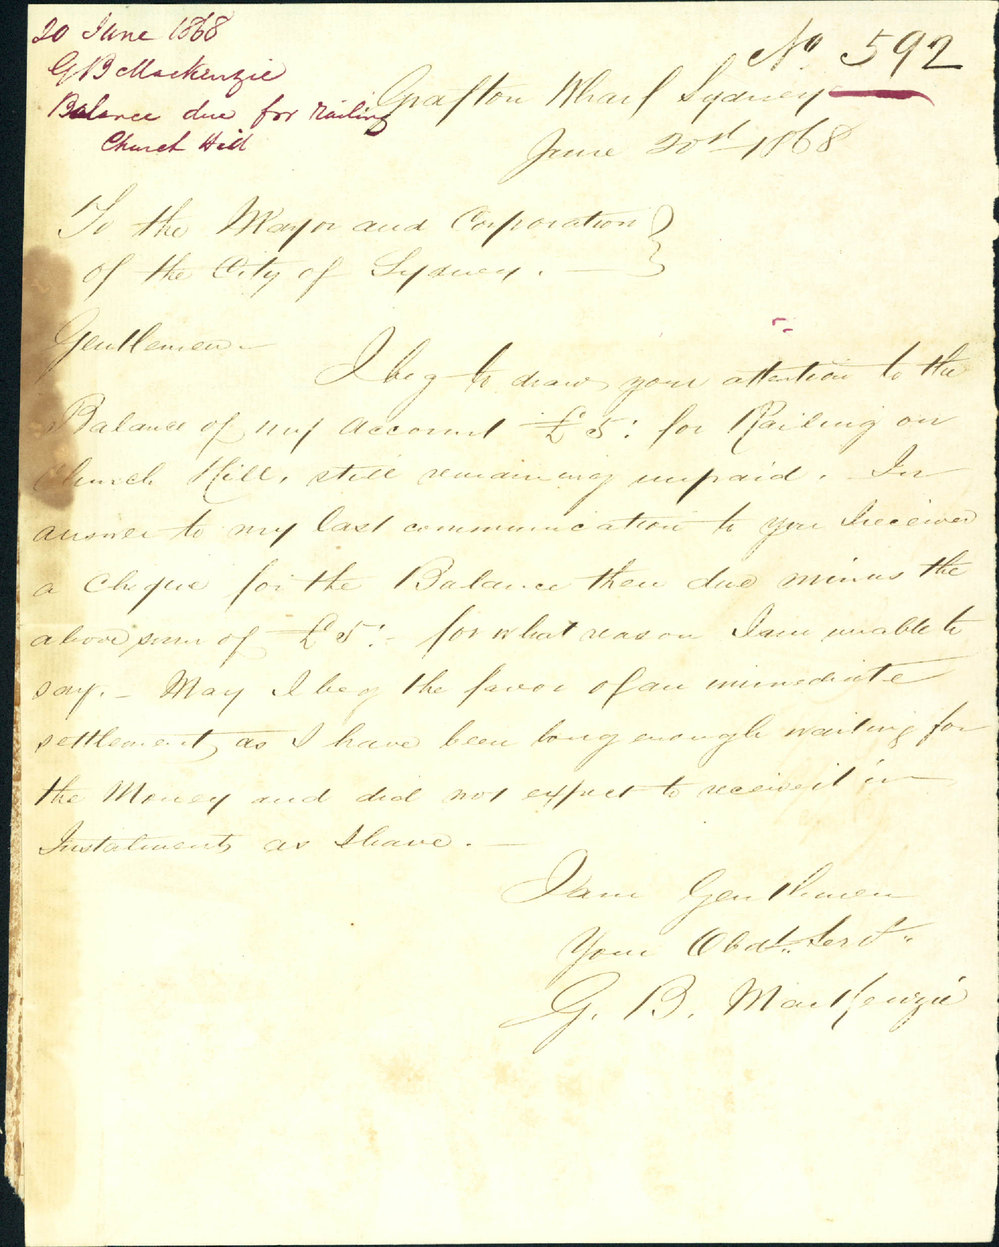 20 June 1868
G B Mackenzie
Balance due for railing
Church Hill
No 592
Grafton Wharf Sydney
June 20st 1868
To the Mayor and Corporation
of the City of Sydney. —
Gentlemen —
I beg to draw your attention to the
Balance of my account £5: for Railing on
Church Hill, still remaining unpaid. In
answer to my last communication to you I received
a cheque for the Balance then due minus the
above sum of £5:- for what reason I am unable to
say. — May I beg the favor of an immediate
settlement, as I have been long enough waiting for
the Money and did not expect to receive it in
Instalments as I have. —
I am Gentlemen
Your Obdt. Servt.
G. B. MacKenzie